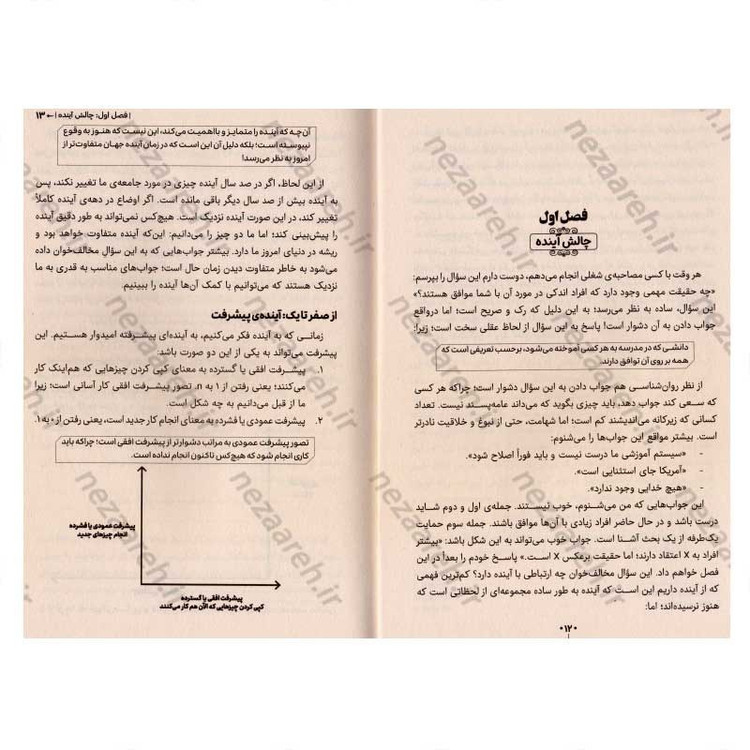 فصل اول
چالش آینده
هر وقت با کسی مصاحبه‌ی شغلی انجام می‌دهم، دوست دارم این سؤال را بپرسم:
«چه حقیقت مهمی وجود دارد که افراد اندکی در مورد آن با شما موافق هستند؟»
این سؤال، ساده به نظر می‌رسد؛ به این دلیل که رک و صریح است؛ اما درواقع
جواب دادن به آن دشوار است! پاسخ به این سؤال از لحاظ عقلی سخت است؛ زیرا:
دانشی که در مدرسه به هر کسی آموخته می‌شود، برحسب تعریفی است که
همه بر روی آن توافق دارند.
از نظر روان‌شناسی هم جواب دادن به این سؤال دشوار است؛ چراکه هر کسی
که سعی کند جواب دهد، باید چیزی بگوید که می‌داند عامه‌پسند نیست. تعداد
کسانی که زیرکانه می‌اندیشند کم است؛ اما شهامت، حتی از نبوغ و خلاقیت نادرتر
است. بیشتر مواقع این جواب‌ها را می‌شنوم:
- «سیستم آموزشی ما درست نیست و باید فوراً اصلاح شود».
- «آمریکا جای استثنایی است».
- «هیچ خدایی وجود ندارد».
این جواب‌هایی که من می‌شنوم، خوب نیستند. جمله‌ی اول و دوم شاید
درست باشد و در حال حاضر افراد زیادی با آن‌ها موافق باشند. جمله سوم حمایت
یک‌طرفه از یک بحث آشنا است. جواب خوب می‌تواند به این شکل باشد: «بیشتر
افراد به X اعتقاد دارند؛ اما حقیقت برعکس X است.» پاسخ خودم را بعداً در این
فصل خواهم داد. این سؤال مخالف‌خوان چه ارتباطی با آینده دارد؟ کم‌ترین فهمی
که از آینده داریم این است که آینده به طور ساده مجموعه‌ای از لحظاتی است که
هنوز نرسیده‌اند؛ اما:
۱۲
| فصل اول: چالش آینده | ← ۱۳
آن‌چه که آینده را متمایز و بااهمیت می‌کند، این نیست که هنوز به وقوع
نپیوسته است؛ بلکه دلیل آن این است که در زمان آینده جهان متفاوت‌تر از
امروز به نظر می‌رسد!
از این لحاظ، اگر در صد سال آینده چیزی در مورد جامعه‌ی ما تغییر نکند، پس
به آینده بیش از صد سال دیگر باقی مانده است. اگر اوضاع در دهه‌ی آینده کاملاً
تغییر کند، در این صورت آینده نزدیک است. هیچ‌کس نمی‌تواند به طور دقیق آینده
را پیش‌بینی کند؛ اما ما دو چیز را می‌دانیم: این‌که آینده متفاوت خواهد بود و
ریشه در دنیای امروز ما دارد. بیشتر جواب‌هایی که به این سؤال مخالف‌خوان داده
می‌شود به خاطر متفاوت دیدن زمان حال است؛ جواب‌های مناسب به قدری به ما
نزدیک هستند که می‌توانیم با کمک آن‌ها آینده را ببینیم.
از صفر تا یک: آینده‌ی پیشرفت
زمانی که به آینده فکر می‌کنیم، به آینده‌ای پیشرفته امیدوار هستیم. این
پیشرفت می‌تواند به یکی از این دو صورت باشد:
۱. پیشرفت افقی یا گسترده به معنای کپی کردن چیزهایی که هم‌اینک کار
می‌کنند؛ یعنی رفتن از ۱ به n. تصور پیشرفت افقی کار آسانی است؛ زیرا
ما از قبل می‌دانیم به چه شکل است.
۲. پیشرفت عمودی یا فشرده به معنای انجام کار جدید است، یعنی رفتن از ۰ به ۱.
تصور پیشرفت عمودی به مراتب دشوارتر از پیشرفت افقی است؛ چراکه باید
کاری انجام شود که هیچ‌کس تاکنون انجام نداده است.
پیشرفت عمودی یا فشرده
انجام چیزهای جدید
پیشرفت افقی یا گسترده
کپی کردن چیزهایی که الآن هم کار می‌کنند
nezaareh.ir